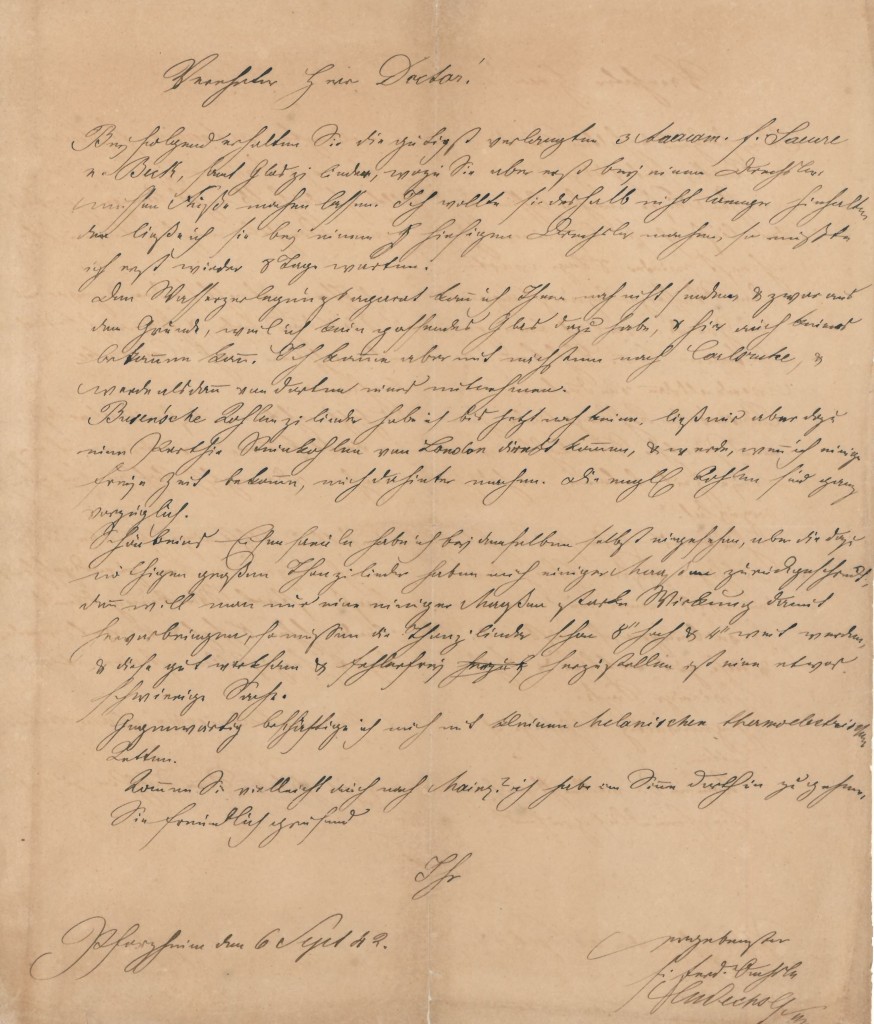 Verehrter Herr Doctor!
Beyfolgend erhalten Sie die gütigst verlangten 3 Araeom. f. Saeure
n. Beck, samt Glaszilinder, wozu Sie aber erst bey einem Drechsler
müssen Füße machen lassen. Ich wollte sie deshalb nicht laenger hinhalten
den ließe ich sie bei einem hiesigen Drechsler machen, so müßte
ich erst wieder 8 Tage warten.
Den Wasserzerlegungsaparat kann ich Ihnen noch nicht senden, & zwar aus
dem Grunde, weil ich kein passendes Glas dazu habe, & hier auch keines
bekommen kann. Ich komme aber mit nächstem nach Carlsruhe, &
werde alsdann von dorten eines mitnehmen.
Bunsen'sche Kohlenzilinder habe ich bis jetzt noch keine, ließ mir aber dazu
eine Parthie Steinkohlen von London direckt kommen, & werde, wenn ich einige
freye Zeit bekomme, mich dahinter machen. Die engl. Kohlen sind ganz
vorzüglich.
Schönbeins Eisensaeule habe ich bei demselben selbst eingesehen, aber die dazu
nöthigen großen Thonzilinder haben mich einiger Maaßen zurückgeschreckt,
denn will man nur eine einiger Maaßen starke Wirkung damit
hervorbringen, so müssen die Thonzilinder schon 8" hoch & 4" weit werden,
& diese gut wirksam & fehlerfrey herzustellen ist eine etwas
schwierige Sache.
Gegenwärtig beschäftige ich mich mit kleinen Melonischen thermoelectrischen
Ketten.
Kommen Sie vielleicht auch nach Mainz? ich habe im Sinne dorthin zu gehen,
Sie freundlich grüsend
Ihr
Pforzheim den 6 Sept 42.
ergebenster
Ferd. Oechsle